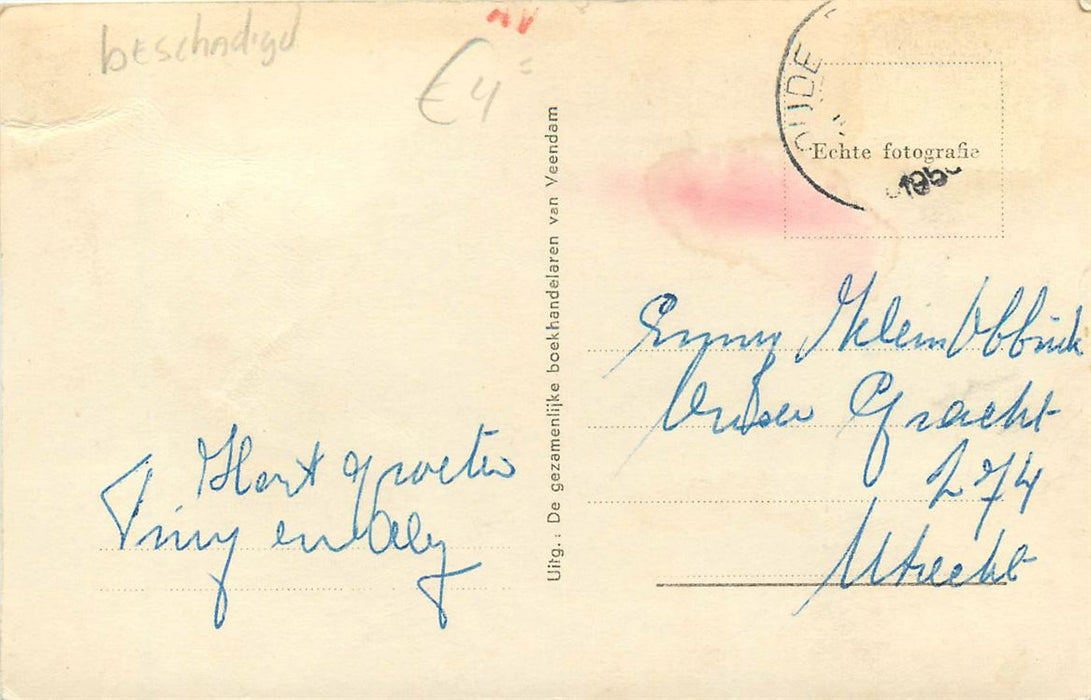 beschadigd
€4=
OUDE
Echte fotografie
195
Uitg.: De gezamenlijke boekhandelaren van Veendam
Hart groeten
Tiny en Aly
Emmy Klein Obbink
Gracht
274
Utrecht